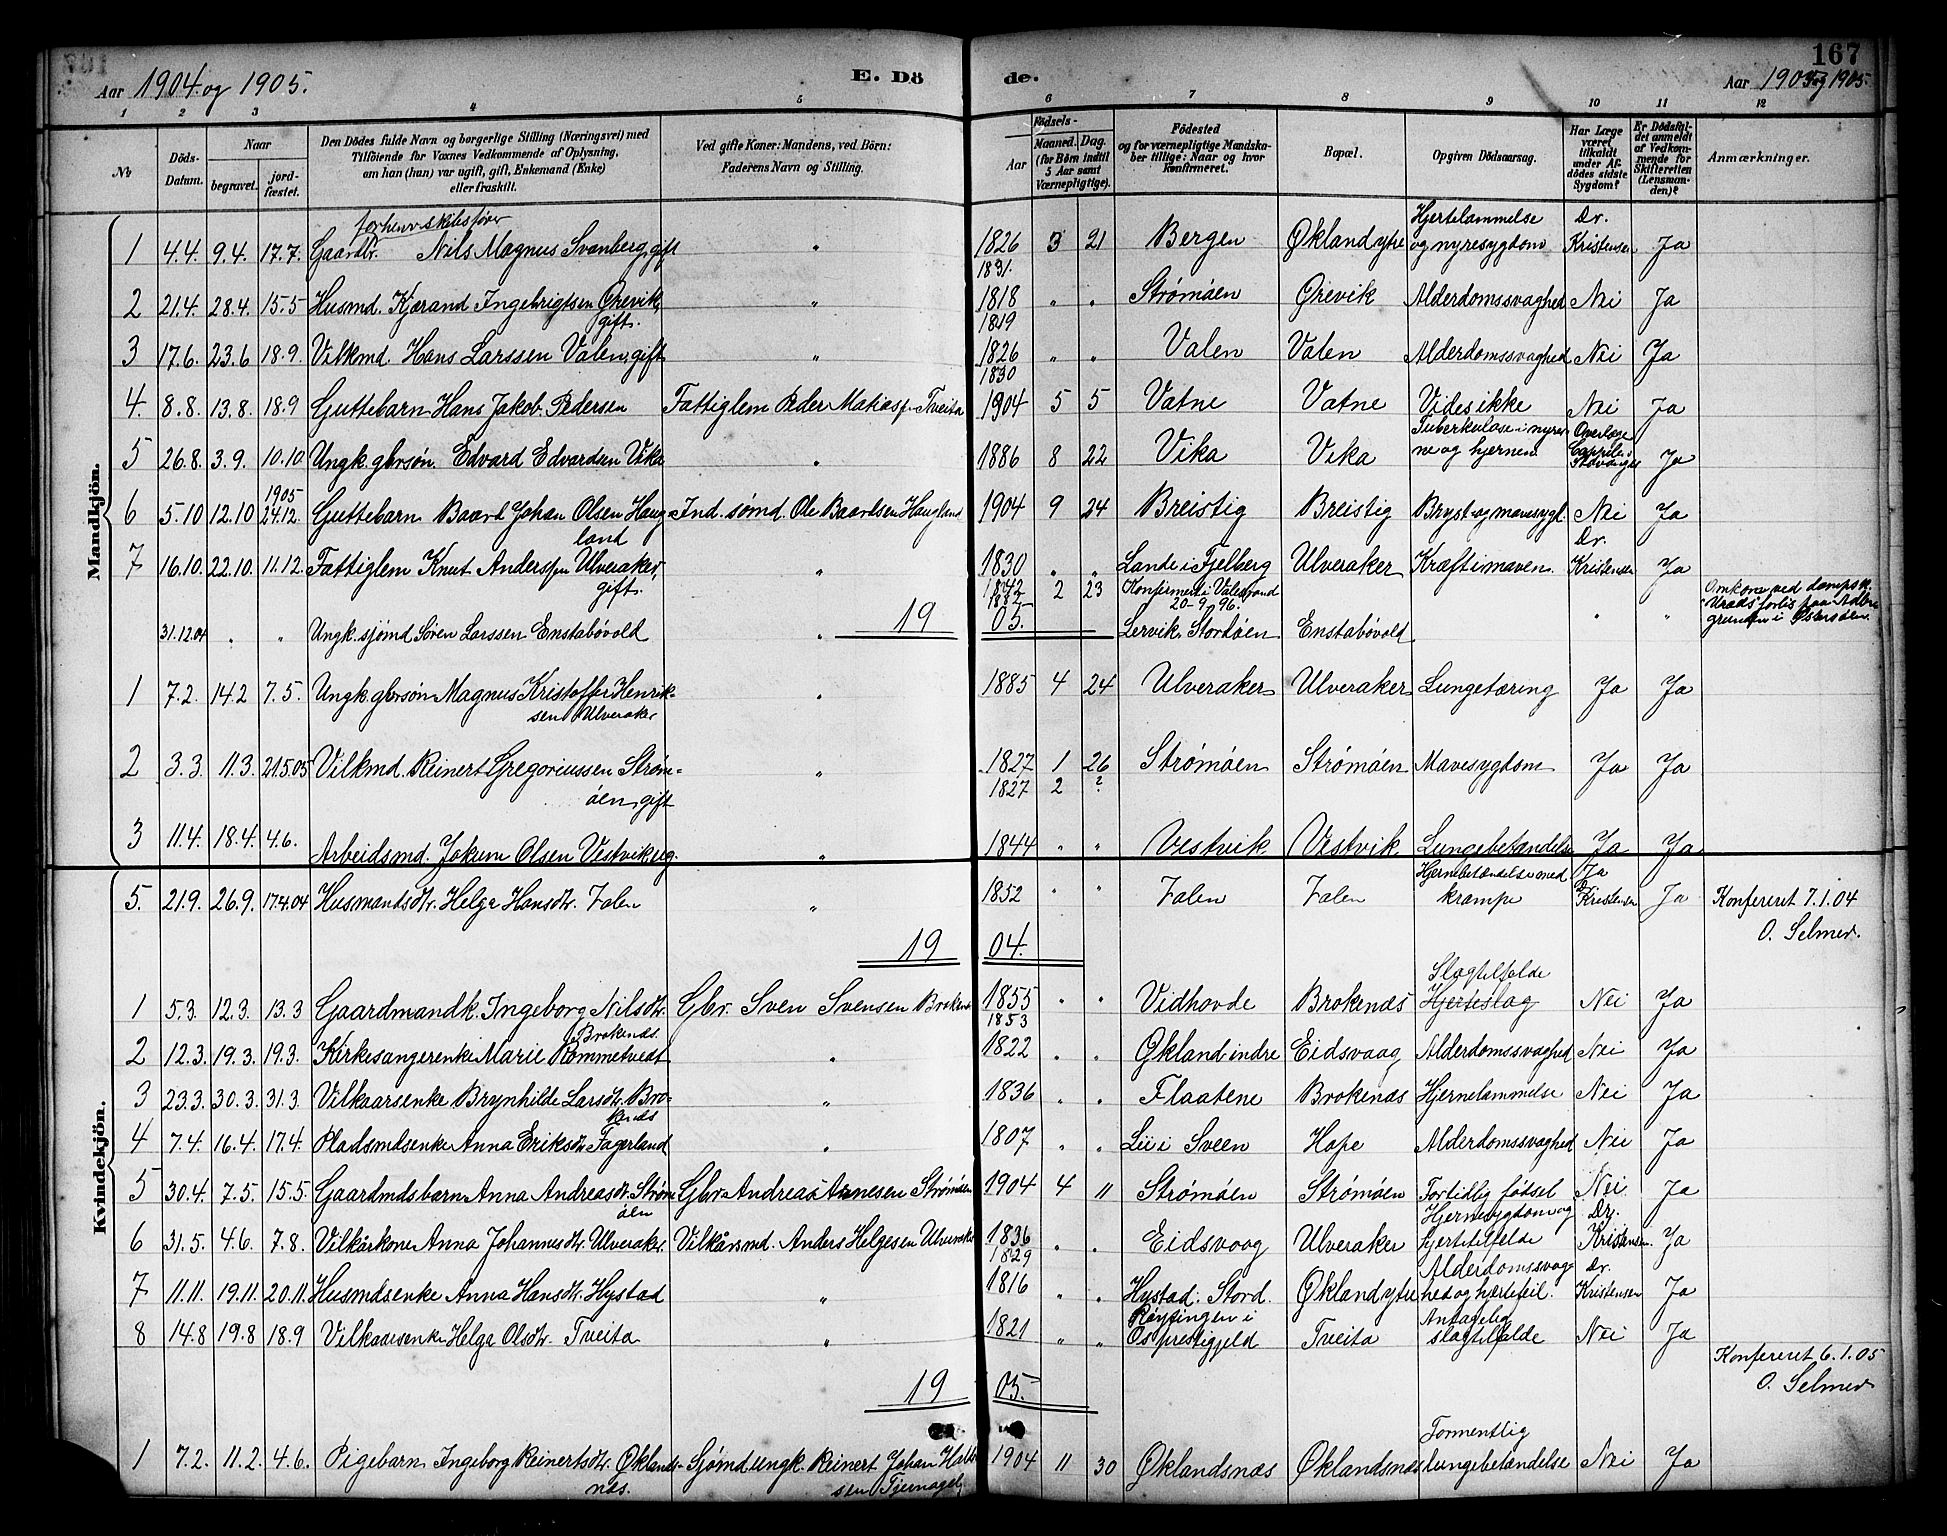 167
Aar 1904 og 1905.
E. Dö
de.
Aar 1904 og 1905.
1 2 3 4 5 6 7 8 9 10 11 12
No
Döds-Datum.
Naar
begravet.
jord-fæstet.
Den Dödes fulde Navn og borgerlige Stilling (Næringsvei) med
Tilföiende for Voxnes Vedkommende af Oplysning,
om han (hun) var ugift, gift, Enkemand (Enke)
eller fraskilt.
Ved gifte Koner: Mandens, ved Börn:
Faderens Navn og Stilling.
Födsels-
Aar
Maaned. Dag.
(for Börn indtil
5 Aar samt
Værnepligtige).
Födested
og for værnepligtige Mandska-
ber tillige: Naar og hvor
konfirmeret.
Bopæl.
Opgiven Dödsaarsag.
Har Læge
været
tilkaldt
under Af-
dödes sidste
Sygdom?
Er Dödsfal-
det anmeldt
af Vedkom-
mende for
Skifteretten
(Lensman-
den)?
Anmærkninger.
Mandkjön.
forhenv. skibsfører
1 4.4. 9.4. 17.7. Gaardbr. Nils Magnus Svanberg, gift " 1826 3 21 Bergen Økland ytre Hjertelammelse og nyresygdom Dr. Kristensen Ja
1831.
2 21.4. 28.4. 15.5 Husmd. Kjærand Ingebrigtsen Ørevik, gift. " 1818 " " Strømøen Ørevik Alderdomssvaghed Nei Ja
1819
3 17.6. 23.6 18.9. Vilkmd. Hans Larssen Valen, gift " 1826 " " Valen Valen Alderdomssvaghed Nei Ja
1830
4. 8.8. 13.8. 18.9 Guttebarn Hans Jakob Pedersen Fattiglem Peder Matiass. Tveita 1904 5 5 Vatne Vatne Vides ikke Nei Ja
5 26.8. 3.9. 10.10 Ungk. gbrsøn. Edvard Edvardsen Vika " 1886 8 22 Vika Vika Tuberkulose i nyrerne og hjernen. Overlæge Cappelen Stavanger Ja
6 5.10 12.10 1905 24.12. Guttebarn Baard Johan Olsen Haugland Ind. sømd. Ole Baardsen Haugland 1904 9 24 Breistig Breistig Bryst og mavesygd. Nei Ja
7 16.10. 22.10. 11.12. Fattiglem Knut Anderssen Ulveraker, gift. " 1830 " " Lande i Fjelberg Ulveraker Kræft i maven. Dr. Kristensen Ja
1842 2 23 Konfirmert i Valestrand 20-9 96.
19 05.
31.12.04 " " Ungk. sjömd Sören Larssen Enstabövold " Lervik. Stordøen Enstabövold " " Omkom ved dampsk. forlis paa grunden i Østersøen.
1 7.2. 14.2 7.5. Ungk. gbrsøn Magnus Kristoffer Henriksen Ulveraker " 1885 4 24 Ulveraker Ulveraker Lungetæring Ja Ja
2 3.3. 11.3. 21.5.05 Vilkmd. Reinert Gregoriussen Strømøen, gift " 1827 1 26 Strømøen Strømøen Mavesygdom Ja Ja
1827 2 ?
3 11.4. 18.4. 4.6. Arbeidsmd. Jokum Olsen Vestvik ug. " 1844 " " Vestvik. Vestvik. Lungebetændelse Ja Ja
Kvindekjön.
5. 21.9. 26.9. 17.4.04 Husmandsdtr. Helga Hansdtr. Zalen " 1852 " " Zalen Zalen Hjernebetændelse med krampe Ja Kristensen Ja Konfereret 7.1.04
O. Selmer.
19 04.
1 5.3. 12.3. 13.3 Gaardmandk. Ingeborg Nilsdtr. Brokenæs. Gbr. Sven Svensen Brokenæs 1855 " " Vidhovde Brokenæs Slagtilfælde Hjerteslag Nei Ja
1853
2 12.3. 19.3. 19.3. Kirkesangerenke Marie Rommetvedt " 1822 " " Økland indre Eidsvaag Alderdomssvaghed Nei Ja
3 23.3. 30.3. 31.3. Vilkaarsenke Brynhilde Larsdtr. Brokenæs " 1836 " " Flaatene Brokenæs Hjernelammelse Nei Ja
4 7.4. 16.4. 17.4. Pladsmdsenke Anna Eriksdtr. Fagerland " 1807 " " Lii i Sveen Hope Alderdomssvaghed Nei Ja
5 30.4. 7.5. 15.5. Gaardmdsbarn Anna Andreasdtr. Strømøen Gbr. Andreas Arnesen Strømøen 1904 4 11 Strømøen Strømøen Fortidlig fødsel Nei Ja
6 31.5. 4.6. 7.8. Vilkårkone Anna Johannesdtr. Ulveraker. Vilkårsmd. Anders Helgesen Ulveraker 1836 " " Eidsvaag Ulveraker Hjernesygdom og hjertetilfælde Dr. Kristensen. Ja
1829
7 11.11. 19.11. 20.11. Husmdsenke Anna Hansdtr. Hystad " 1816 " " Hystad. Stord. Økland ytre Alderdomssvaghed og hjertefeil. Dr. Kristensen Ja
8 14.8 19.8 18.9 Vilkaarsenke Helga Olsdtr. Tveita " 1821 " " i Os prestegjeld Tveita Antagelig slagtilfælde Nei Ja
Konfereret 6.1.05
O. Selmer
19 05.
1 7.2. 11.2. 4.6. Pigebarn Ingeborg Reinertsdtr. Øklandsnæs. Sjømd ungk. Reinert Johan 1904 11 30 Øklandsnæs Øklandsnæs Formentlig lungebetændelse Nei Ja